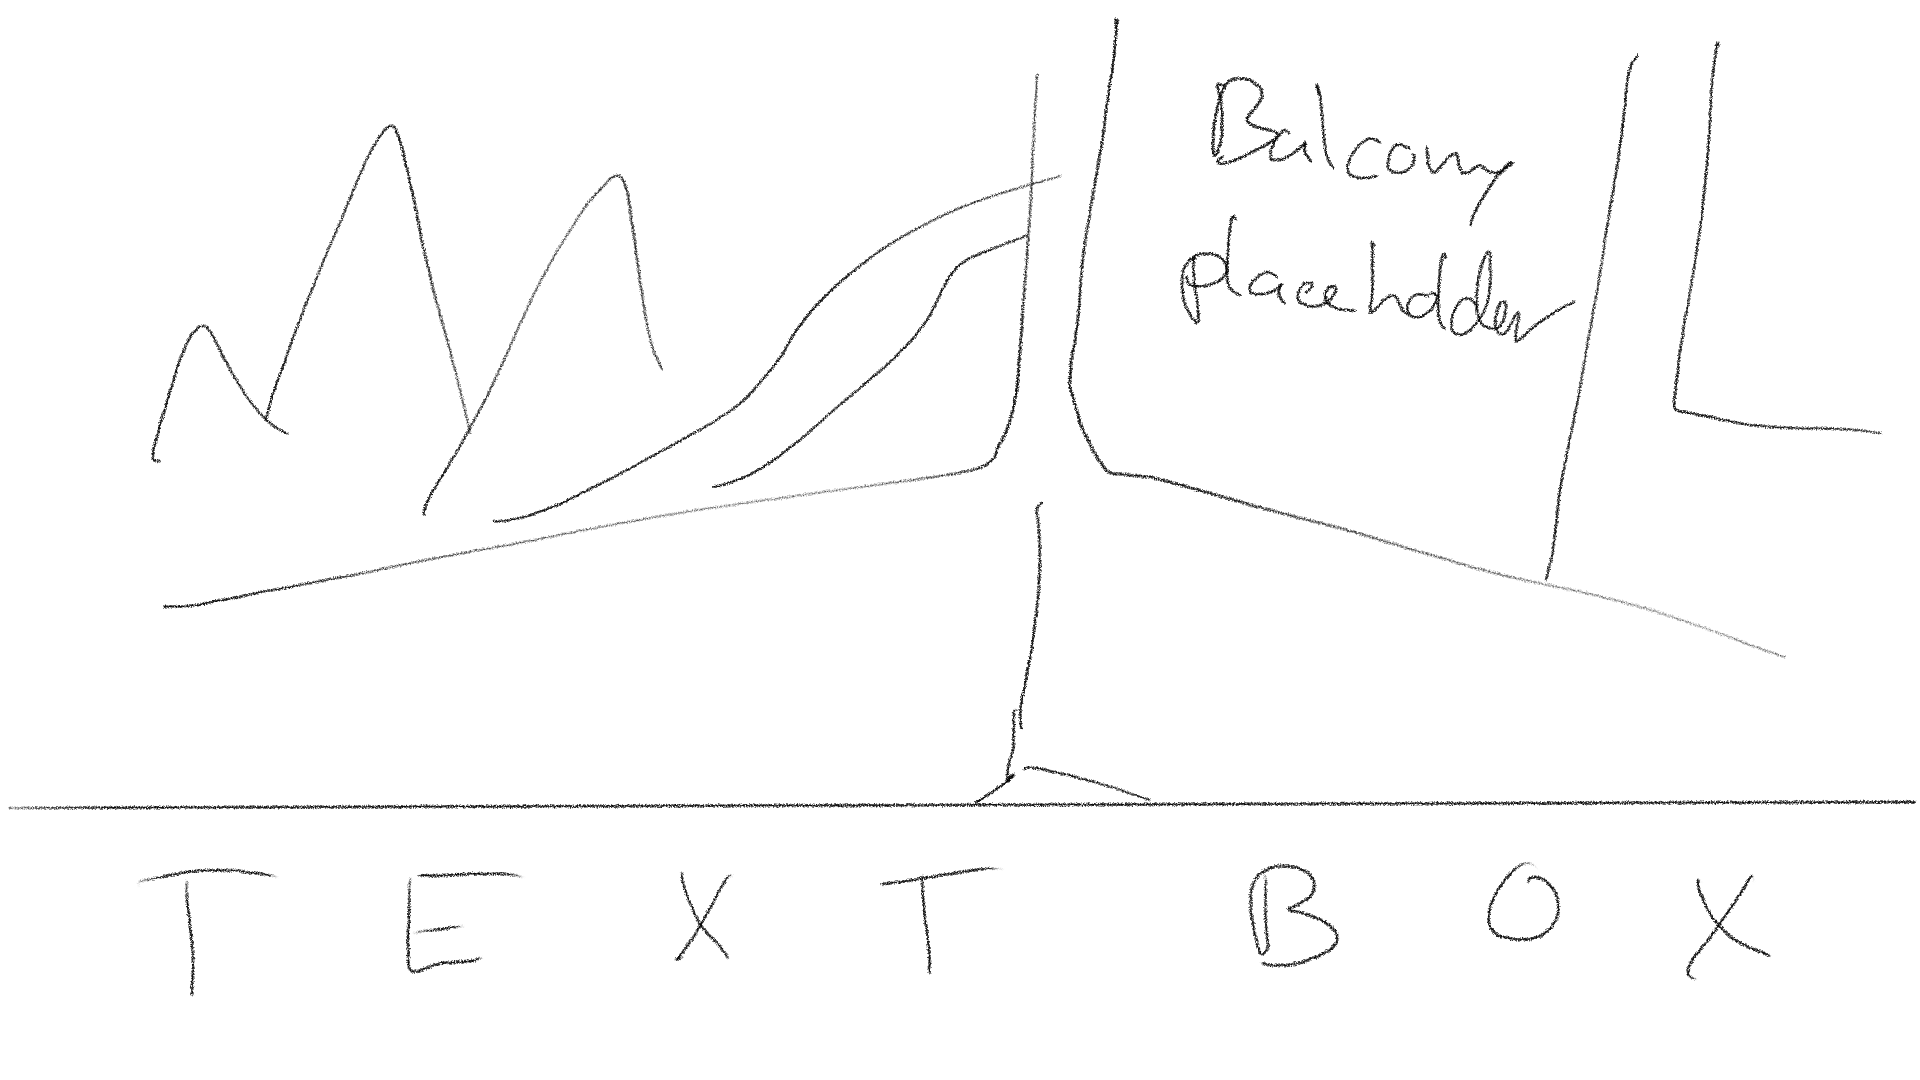 Balcony
placeholder
TEXT BOX